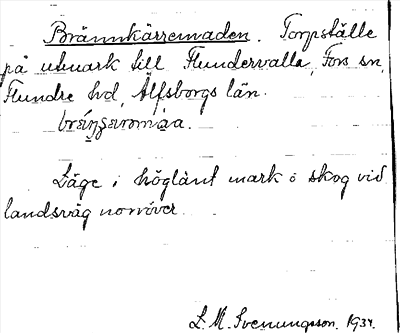 Brännkärremaden. Torpställe
på utmark till Flundervalla, Fors sn,
Flundre hd, Älfsborgs län.
Läge i höglänt mark o skog vid
landsväg norröver.
L. M. Svenungsson. 1934.